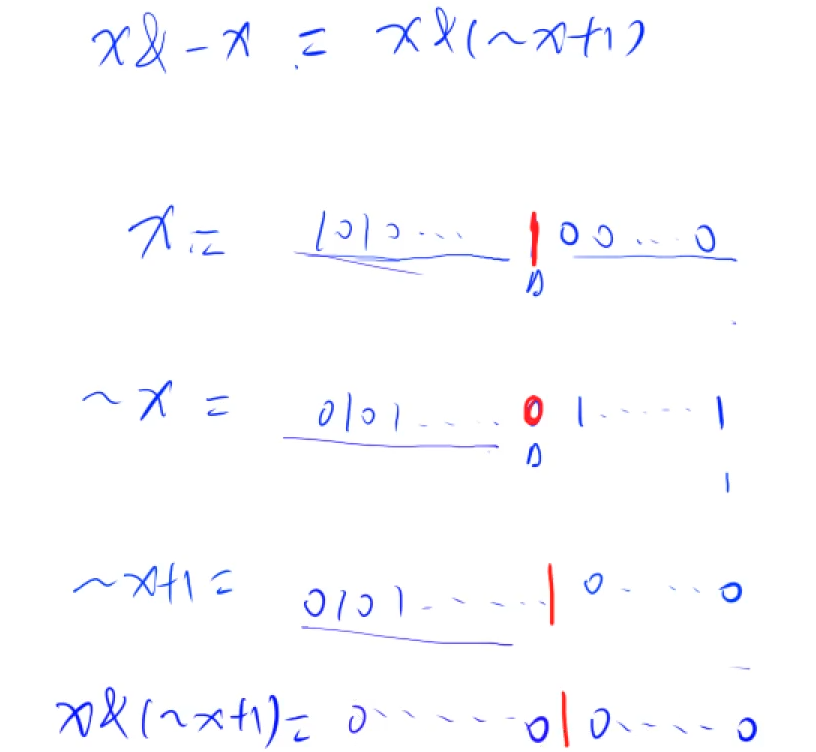 x&-x = x&(~x+1)
x = 1010... 1 00...0
~x = 0101..... 0 1......1
1
~x+1 = 0101......1 0.....0
x&(~x+1) = 0......0 1 0.....0